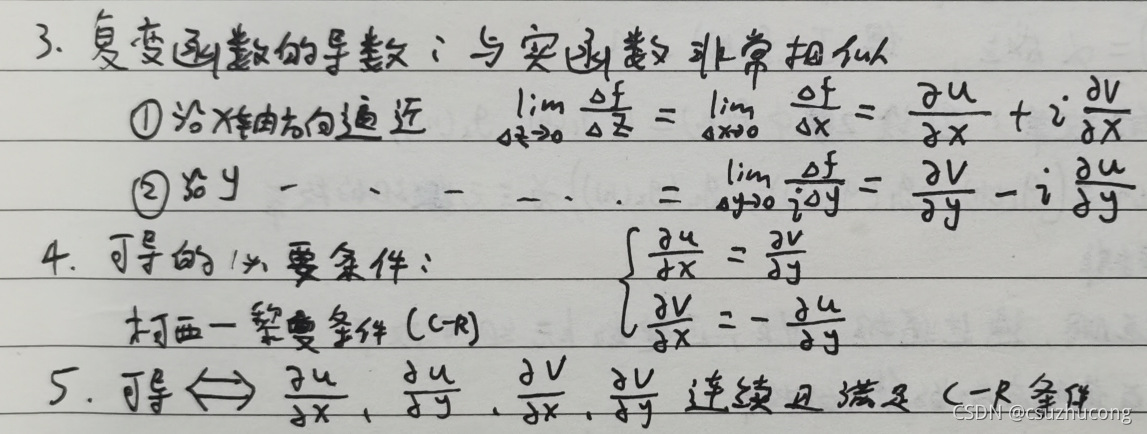 3. 复变函数的导数:与实函数非常相似
①沿X轴方向逼近 lim Δz→0 Δf/Δz = lim Δx→0 Δf/Δx = ∂u/∂x + i ∂v/∂x
②沿y - - - - · · = lim Δy→0 Δf/iΔy = ∂v/∂y - i ∂u/∂y
4. 可导的必要条件: { ∂u/∂x = ∂v/∂y
柯西-黎曼条件(C-R) ∂v/∂x = - ∂u/∂y
5. 可导 ⟺ ∂u/∂x、∂u/∂y、∂v/∂x、∂v/∂y 连续且满足 C-R 条件
CSDN @csuzhucong